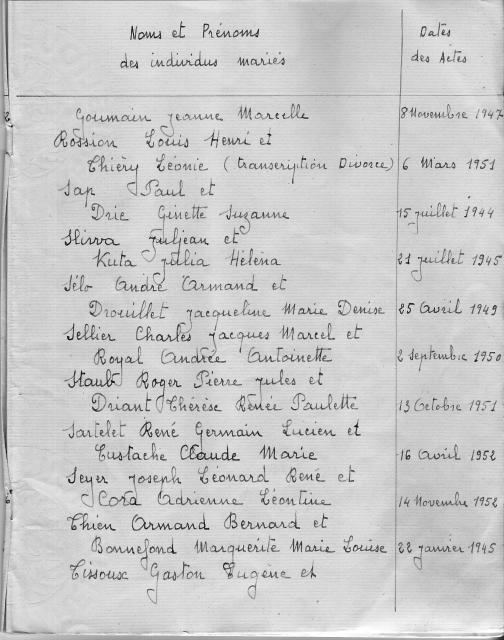 Noms et Prénoms
des individus mariés
Dates
des Actes
Goumain Jeanne Marcelle 8 Novembre 1947
Rossion Louis Henri et
Thiéry Léonie (transcription Divorce) 6 Mars 1951
Sap Paul et
Drie Ginette Suzanne 15 juillet 1944
Juljean et
Kuta Julia Héléna 21 juillet 1945
Sélo André Armand et
Drouillet Jacqueline Marie Denise 25 Avril 1949
Sellier Charles Jacques Marcel et
Royal Andrée Antoinette 2 septembre 1950
Staub Roger Pierre Jules et
Driant Thérèse Renée Paulette 13 Octobre 1951
Sartelet René Germain Lucien et
Eustache Claude Marie 16 Avril 1952
Seyer Joseph Léonard René et
Cora Adrienne Léontine 14 Novembre 1952
Thien Armand Bernard et
Bonnefond Marguerite Marie Louise 22 janvier 1945
Tissoux Gaston Eugène et